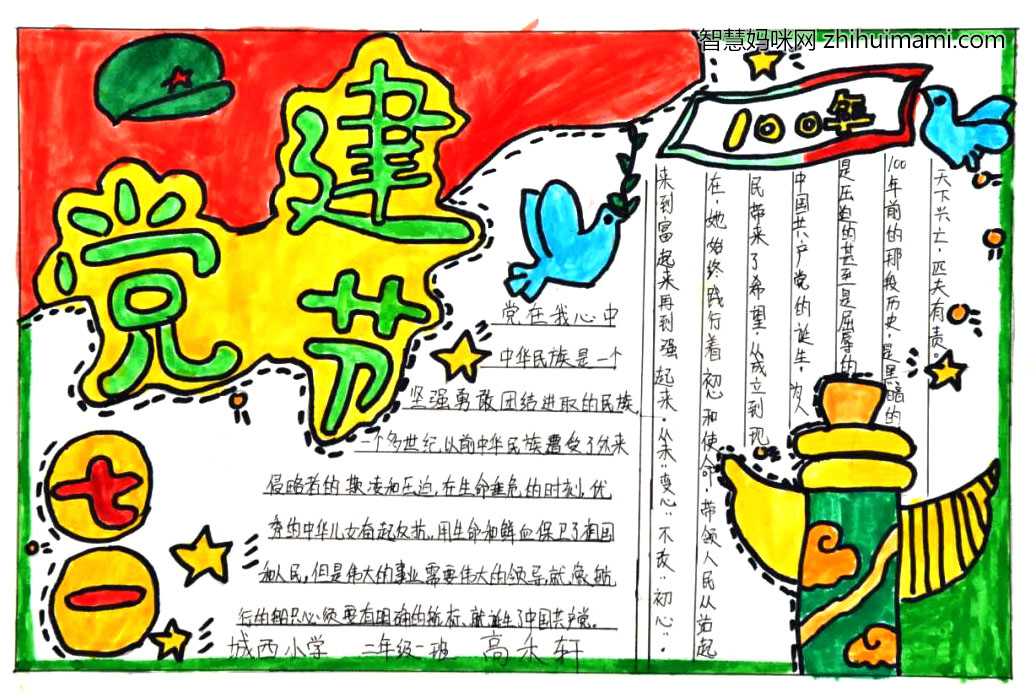 智慧妈咪网 zhihuimami.com
建党节
七一
100年
党在我心中
中华民族是一个
坚强勇敢团结进取的民族,
一个多世纪以前中华民族遭受了外来
侵略者的欺凌和压迫,在生命垂危的时刻,优
秀的中华儿女奋起反抗。用生命和鲜血保卫了祖国
和人民,但是伟大的事业需要伟大的领导,就像航
行的船只必须要有明确的航标、就诞生了中国共产党。
城西小学 二年级一班 高禾轩
天下兴亡,匹夫有责。
100年前的那段历史,是黑暗的
是压迫的甚至是屈辱的
中国共产党的诞生,为人
民带来了希望,从成立到现
在,她始终践行着初心和使命,带领人民从站起
来到富起来再到强起来,从未“变心”不改“初心”。